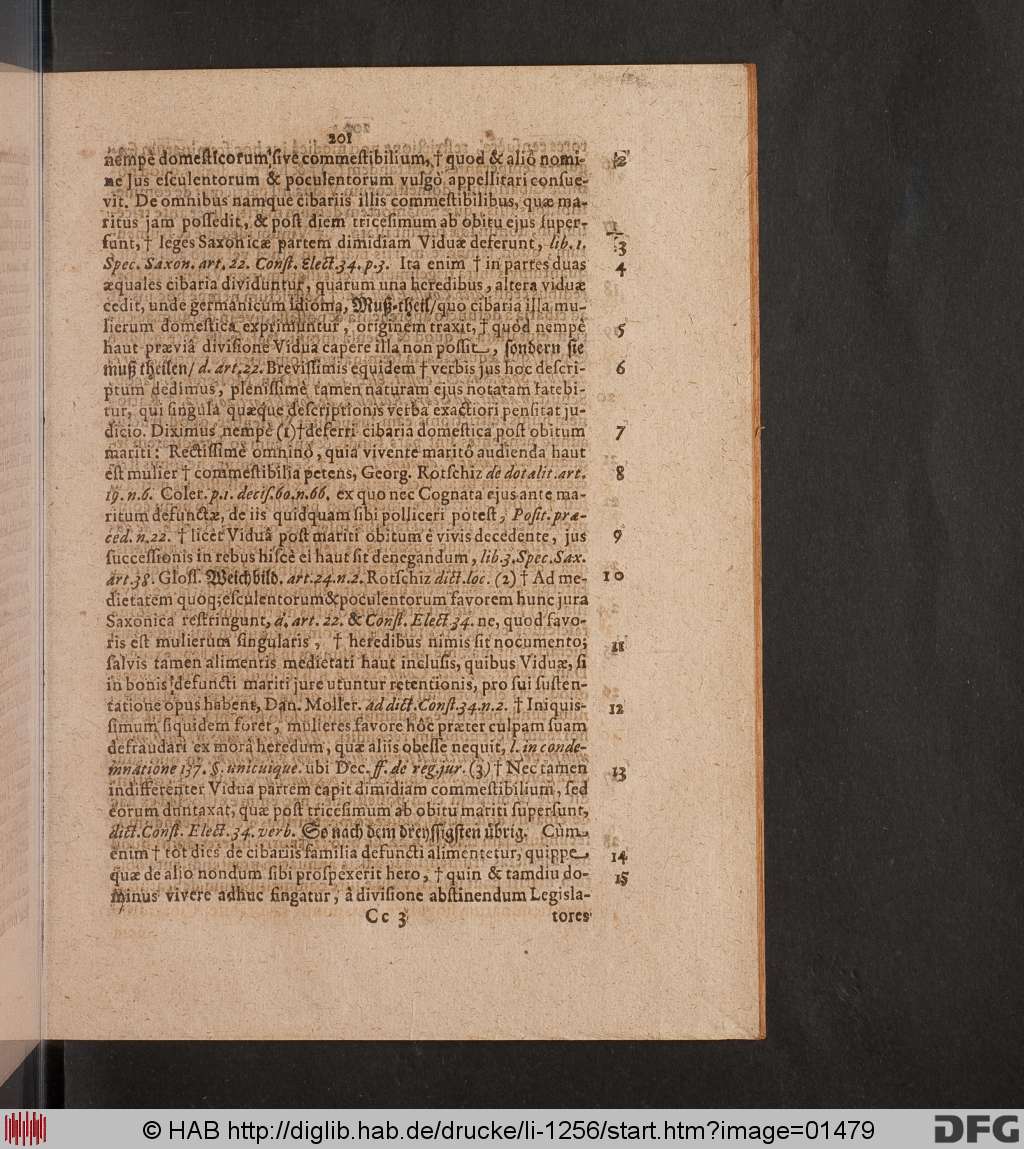 201
nempè domesticorum sive commestibilium, † quod & aliô nomi- 2
ne Jus esculentorum & poculentorum vulgò appellitari consue-
vit. De omnibus namque cibariis illis commestibilibus, quæ ma-
ritus jam possedit, & post diem tricesimum ab obitu ejus super-
sunt, † leges Saxonicæ partem dimidiam Viduæ deferunt, lib. 1. 3
Spec. Saxon. art. 22. Const. Elect. 34. p. 3. Ita enim † in partes duas 4
æquales cibaria dividuntur, quarum una heredibus, altera viduæ
cedit, unde germanicum idioma, Muß-theil/ quo cibaria illa mu-
lierum domestica exprimuntur, originem traxit, † quod nempè 5
haut præviâ divisione Vidua capere illa non possit, sondern sie
muß theilen/ d. art. 22. Brevissimis equidem † verbis jus hoc descri- 6
ptum dedimus, plenissimè tamen naturam ejus notatam fatebi-
tur, qui singula quæque descriptionis verba exactiori pensitat ju-
dicio. Diximus nempè (1) † deferri cibaria domestica post obitum 7
mariti: Rectissimè omninò, quia vivente maritô audienda haut
est mulier † commestibilia petens, Georg. Rotschiz de dotalit. art. 8
19. n. 6. Coler. p. 1. decis. 60. n. 66. ex quo nec Cognata ejus ante ma-
ritum defunctæ, de iis quidquam sibi polliceri potest, Posit. præ-
ced. n. 22. † licet Viduâ post mariti obitum è vivis decedente, jus 9
successionis in rebus hiscè ei haut sit denegandum, lib. 3. Spec. Sax.
art. 38. Gloss. Weichbild. art. 24. n. 2. Rotschiz dict. loc. (2) † Ad me- 10
dietatem quoq; esculentorum & poculentorum favorem hunc jura
Saxonica restringunt, d. art. 22. & Const. Elect. 34. ne, quod favo-
ris est mulierum singularis, † heredibus nimis sit nocumento; 11
salvis tamen alimentis medietati haut inclusis, quibus Viduæ, si
in bonis defuncti mariti jure utuntur retentionis, pro sui susten-
tatione opus habent, Dan. Moller. ad dict. Const. 34. n. 2. † Iniquis- 12
simum siquidem foret, mulieres favore hôc præter culpam suam
defraudari ex morâ heredum, quæ aliis obesse nequit, l. in conde-
mnatione 137. §. unicuique. ubi Dec. ff. de reg. jur. (3) † Nec tamen 13
indifferenter Vidua partem capit dimidiam commestibilium, sed
eorum duntaxat, quæ post tricesimum ab obitu mariti supersunt,
dict. Const. Elect. 34. verb. So nach dem dreyssigsten übrig. Cùm
enim † tot dies de cibariis familia defuncti alimentetur, quippe 14
quæ de alio nondum sibi prospexerit hero, † quin & tamdiu do- 15
minus vivere adhuc fingatur, â divisione abstinendum Legisla-
Cc 3 tores
© HAB http://diglib.hab.de/drucke/li-1256/start.htm?image=01479
DFG